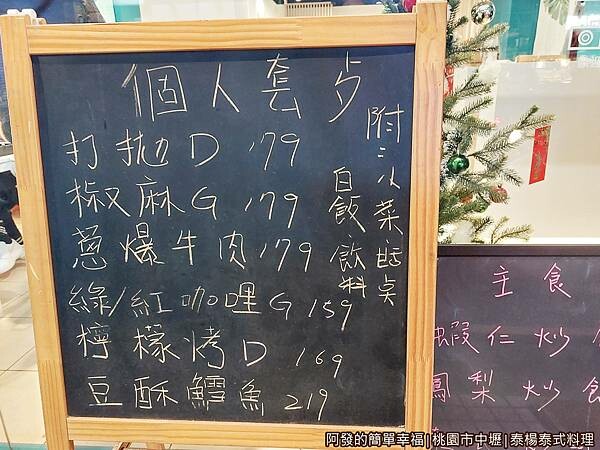 個人套歺
打拋D 179
椒麻G 179
蔥爆牛肉 179
綠/紅咖哩G 159
檸檬烤D 169
豆酥鱈魚 219
附:小菜 甜點
白飯 飲料
主食
蝦仁炒
鳳梨炒
阿發的簡單幸福|桃園市中壢|泰楊泰式料理